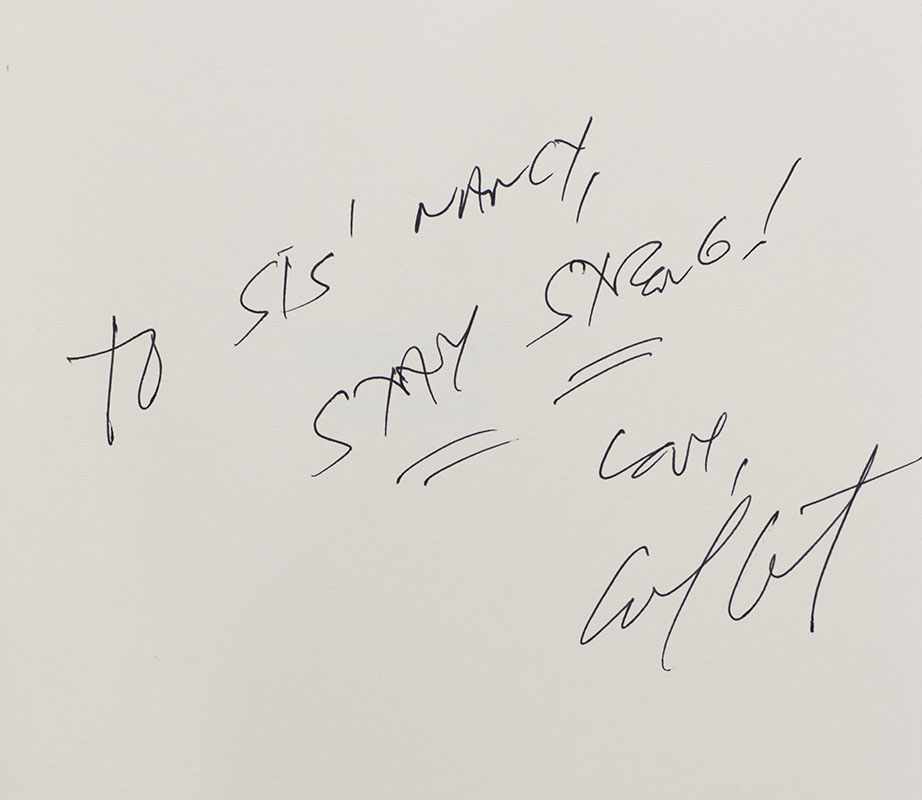 TO SIS' NANCY,
STAY STRONG!
Love,